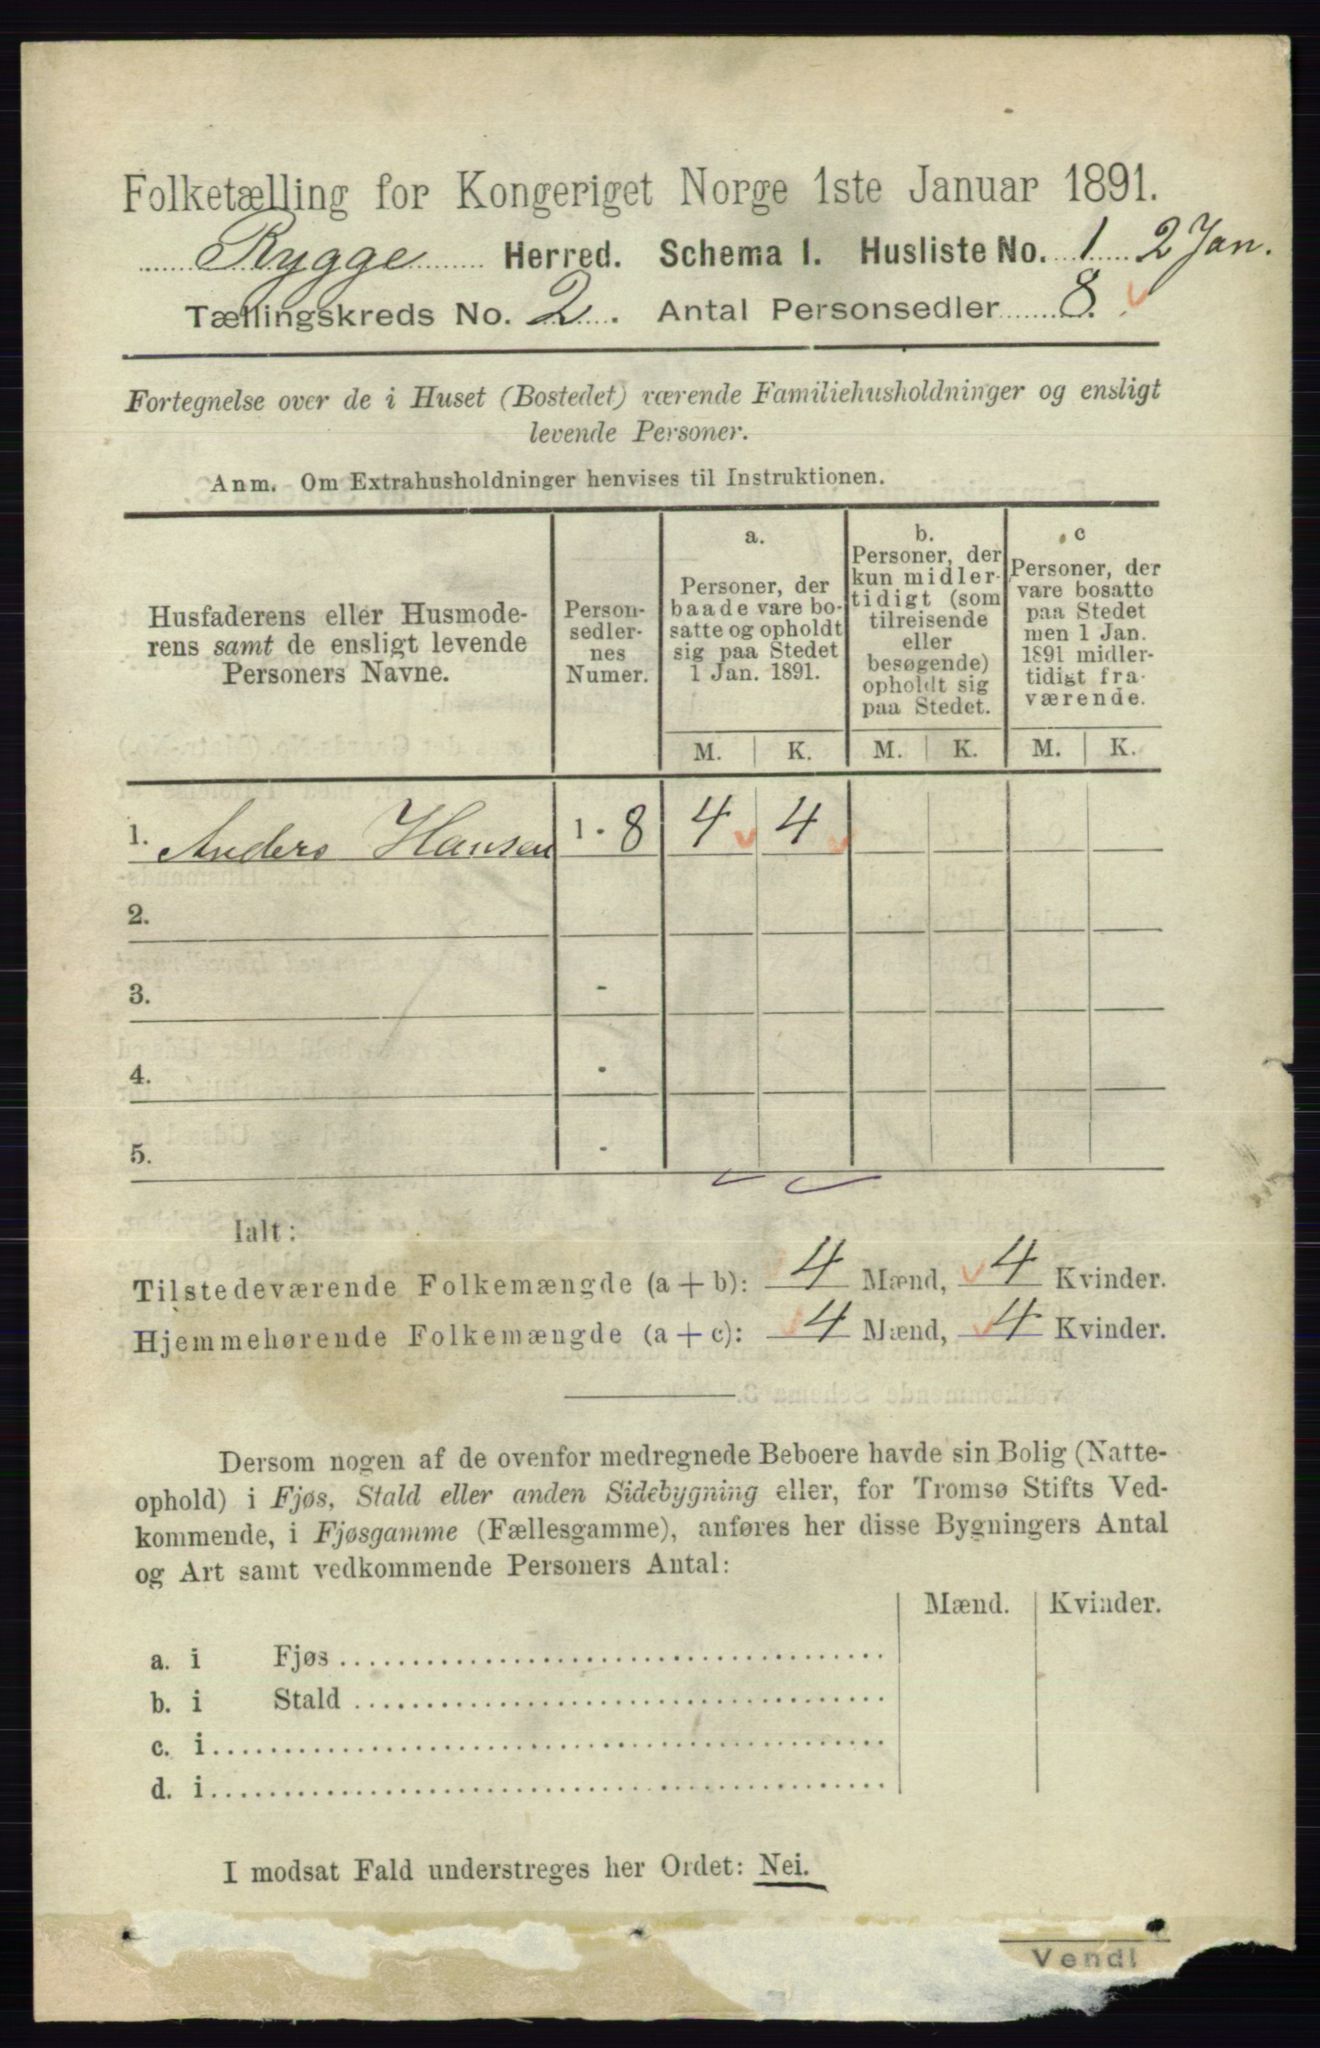 Folketælling for Kongeriget Norge 1ste Januar 1891.
Rygge Herred. Schema I. Husliste No. 1 2 Jan.
Tællingskreds No. 2. Antal Personsedler 8.
Fortegnelse over de i Huset (Bostedet) værende Familiehusholdninger og ensligt
levende Personer.
Anm. Om Extrahusholdninger henvises til Instruktionen.
Husfaderens eller Husmode-
rens samt de ensligt levende
Personers Navne.
Person-
sedler-
nes
Numer.
a.
Personer, der
baade vare bo-
satte og opholdt
sig paa Stedet
1 Jan. 1891.
b.
Personer, der
kun midler-
tidigt (som
tilreisende
eller
besøgende)
opholdt sig
paa Stedet.
c
Personer, der
vare bosatte
paa Stedet
men 1 Jan.
1891 midler-
tidigt fra-
værende.
M. K. M. K. M. K.
1. Anders Hansen 1 - 8 4 4
2.
3. -
4. -
5. -
Ialt:
Tilstedeværende Folkemængde (a + b): 4 Mænd, 4 Kvinder.
Hjemmehørende Folkemængde (a + c): 4 Mænd, 4 Kvinder.
Dersom nogen af de ovenfor medregnede Beboere havde sin Bolig (Natte-
ophold) i Fjøs, Stald eller anden Sidebygning eller, for Tromsø Stifts Ved-
kommende, i Fjøsgamme (Fællesgamme), anføres her disse Bygningers Antal
og Art samt vedkommende Personers Antal:
Mænd. Kvinder.
a. i Fjøs
b. i Stald
c. i
d. i
I modsat Fald understreges her Ordet: Nei.
Vend!